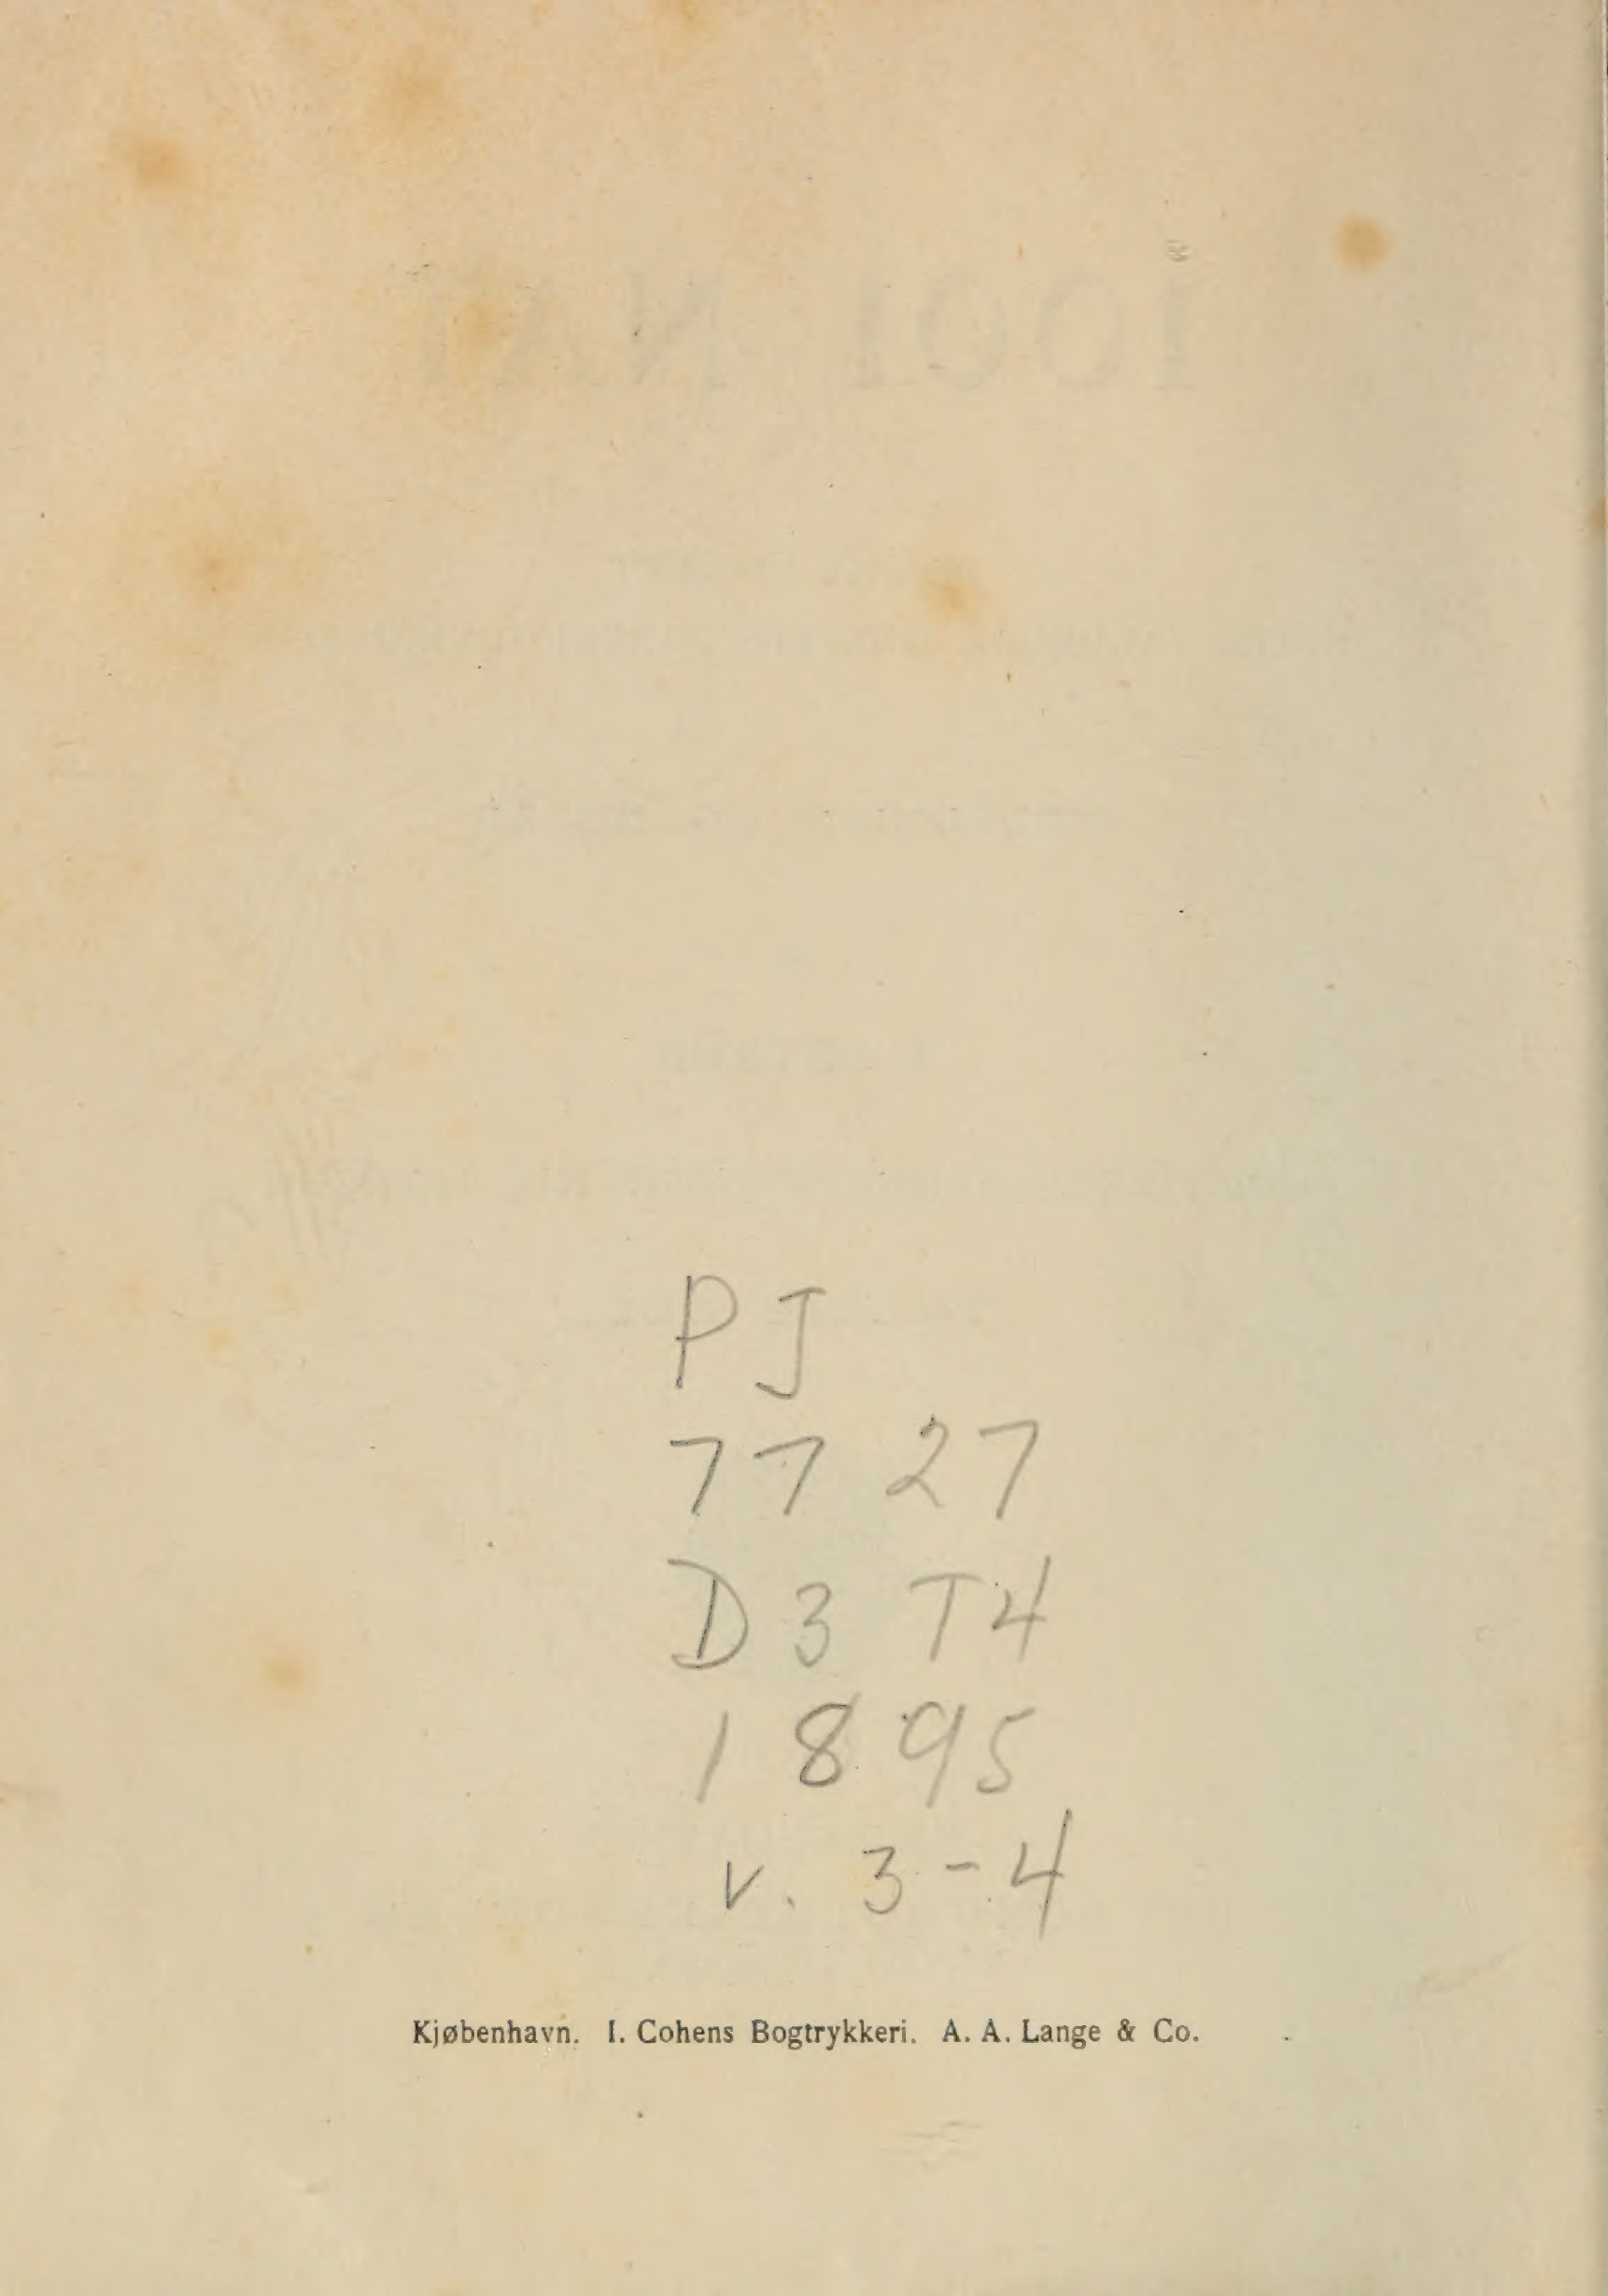 PJ
7727
D3 T4
1895
v. 3-4
Kjøbenhavn. I. Cohens Bogtrykkeri. A. A. Lange & Co.